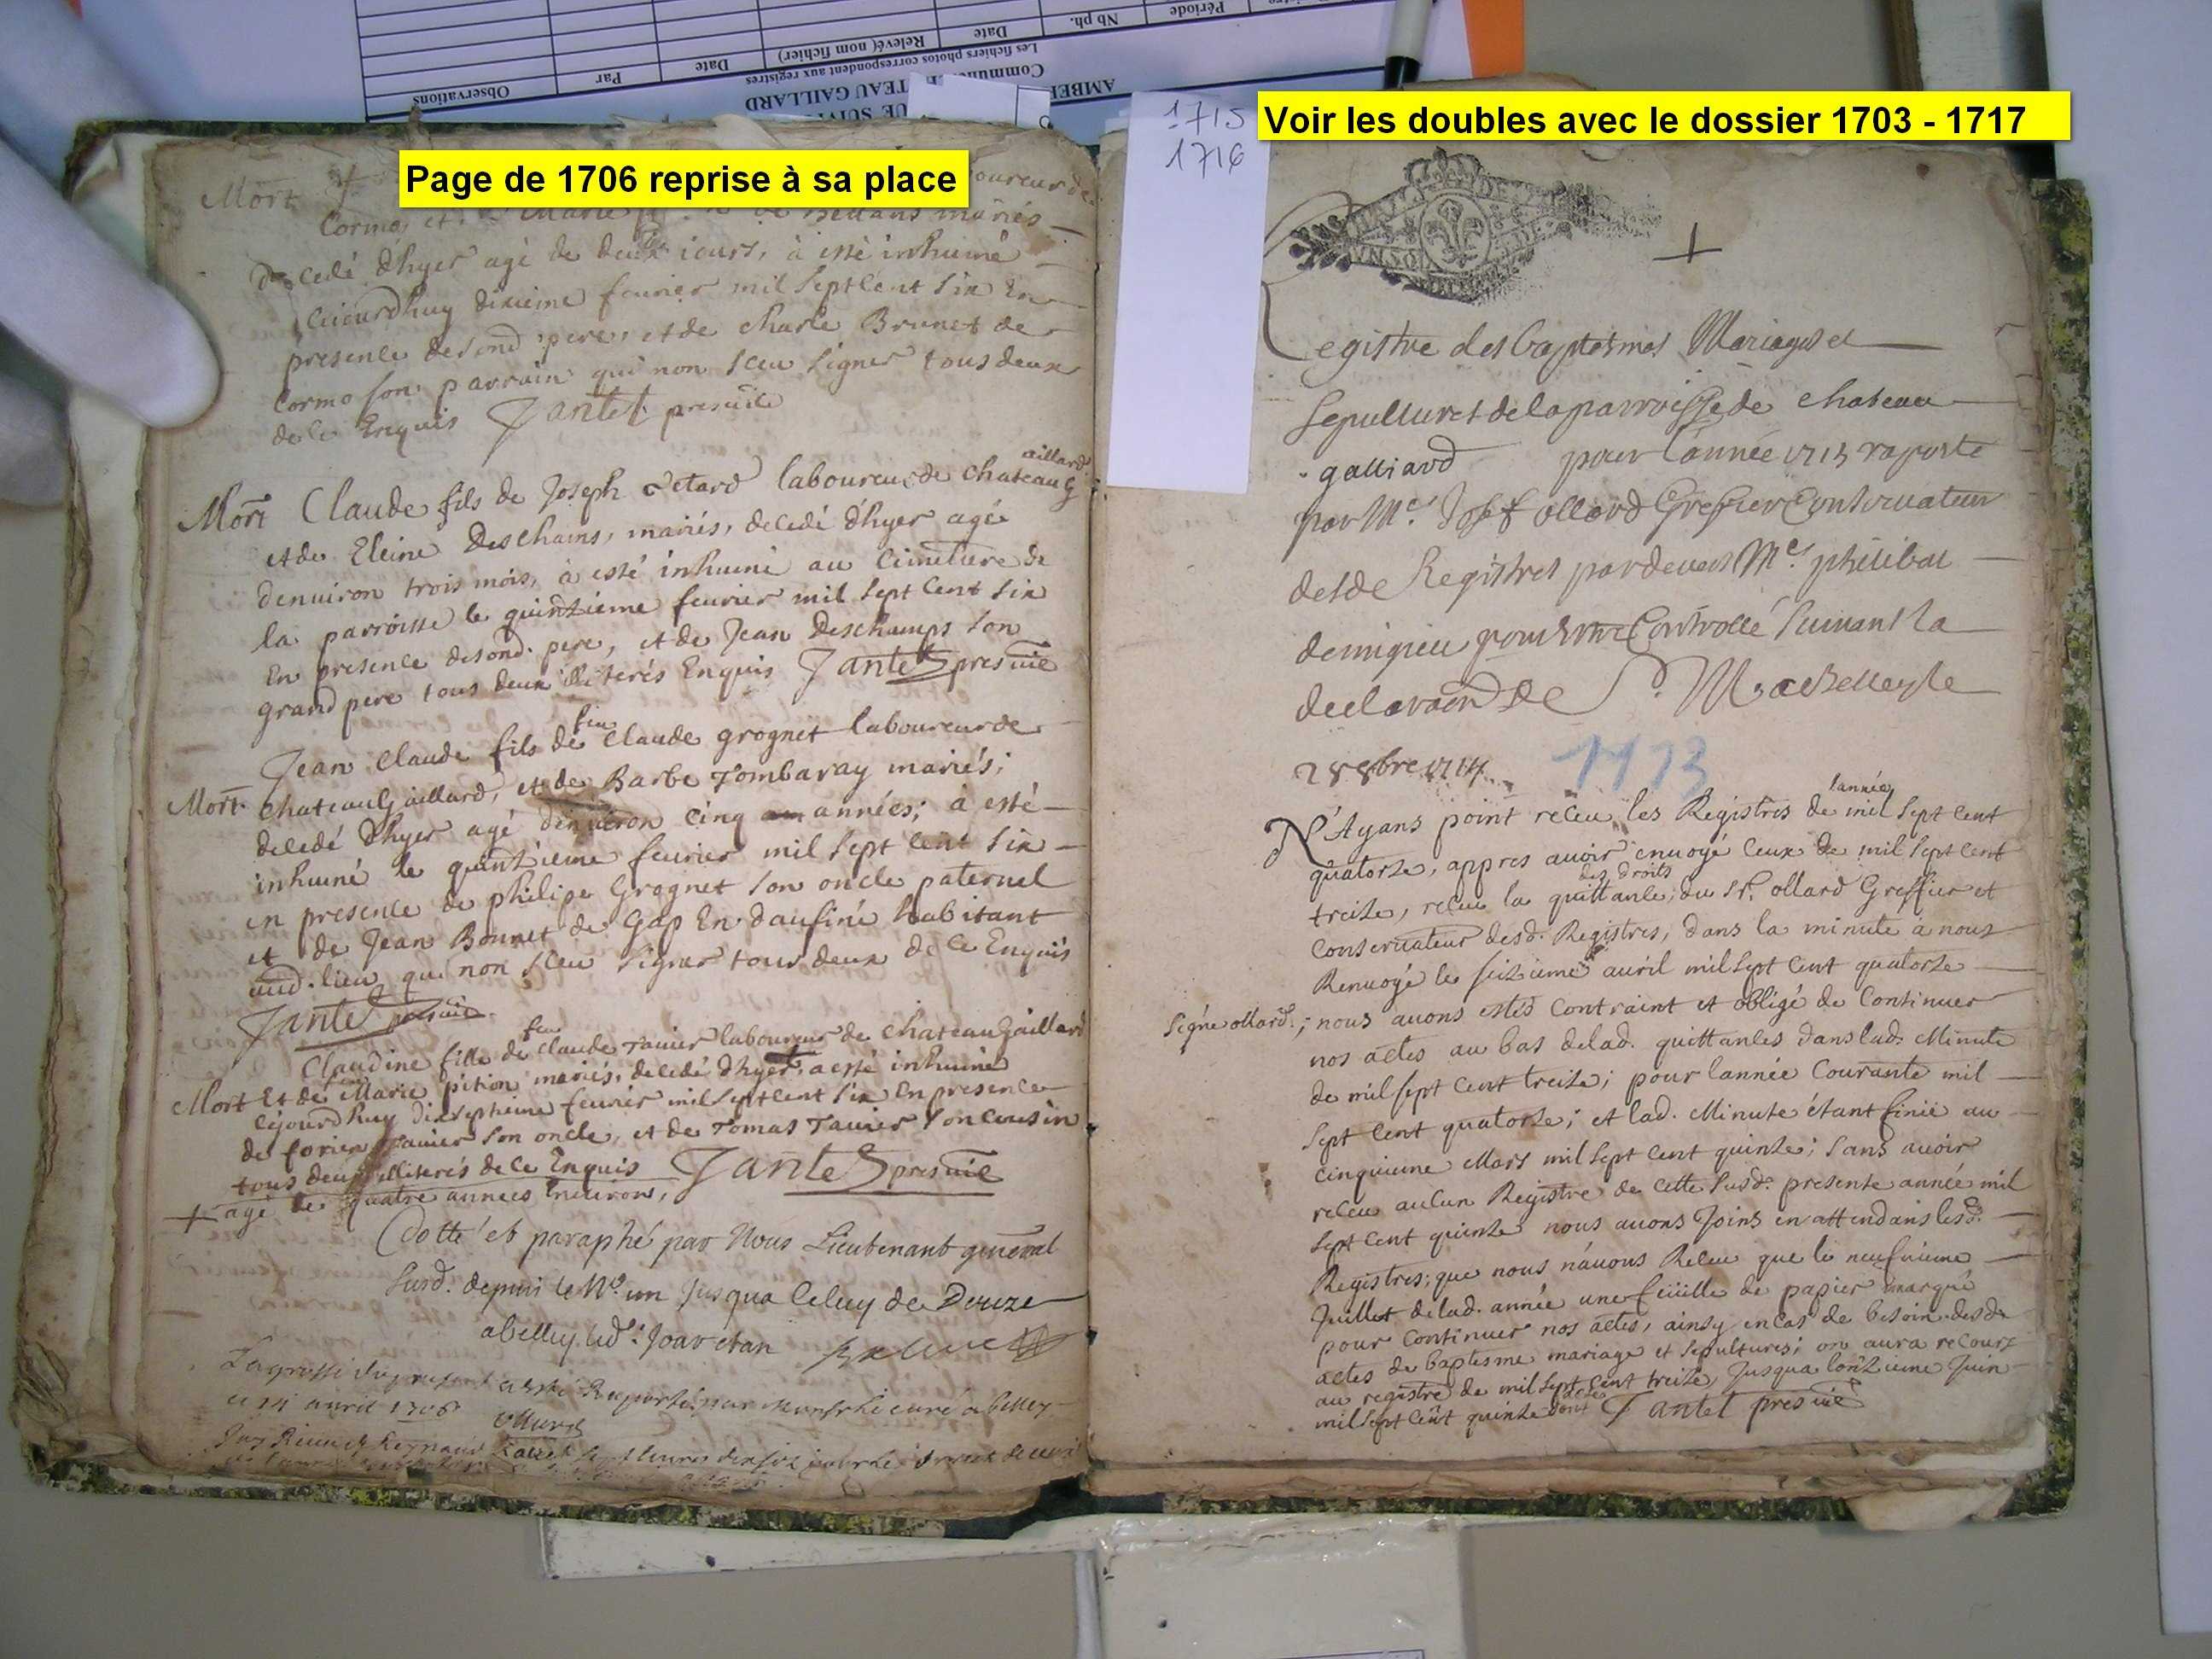 Page de 1706 reprise à sa place
Mort
Cormo, et Marie mariés
decedé d'hyer agé de deux iours, à esté inhumé
ciiourdhuy dixieme feurier mil sept cent six En
presence desond. pere, et de charle Brunet de
Cormo son parrain qui non sceu signer tous deux
de ce Enquis Jantet presvic
Mort Claude fils de Joseph Jetard laboureur de chateauG
aillard
et de Eleine Deschams, mariés, decedé d'hyer agé
denuiron trois mois, à esté inhumé au cimetiere de
la parroisse le quinzieme feurier mil sept cent six
En presence desond. pere, et de Jean Deschamps son
grand pere tous deux illiterés Enquis Jantet presvic
Jean claude fils de feu claude grognet laboureur de
Mort chateauGaillard, et de Barbe Tombaray mariés;
decedé d'hyer agé denuiron cinq années; à esté
inhumé le quinzieme feurier mil sept cent six
en presence de philipe Grognet son oncle paternel
et de Jean Bonnet de Gap En daufiné habitant
aud. lieu qui non sceu signer tous deux de ce Enquis
Jantet presvic
Claudine fille de feu claude Tauier laboureur de chateauGaillard
Mort Et de Marie pition mariés, decedé d'hyer, a esté inhumé
cejourdhuy dixseptieme feurier mil sept cent six En presence
de forien Tauier son oncle, et de Tomas Tauier son cousin
tous deux illiterés de ce Enquis Jantet presvic
+ agé de quatre annees Enuiron,
Cotté et paraphé par Nous Lieutenant general
susd. depuis le No. un jusqua celuy de Douze
abelley led.
ce 14 auril 1706
ollard
Voir les doubles avec le dossier 1703 - 1717
1715
1716
+
Registre des baptesmes Mariages et
Sepultures de la parroisse de chateau
galliard pour l'année 1715 raporté
par Me. Josef ollard Greffier Conservateur
desde Registres pardevers Me. philibert
demigieu pour Controllé suivant la
declaraon de S. M. a Belley le
28 8bre 1714
1713
N'Ayans point receu les Registres de l'année mil sept cent
quatorze, appres auoir enuoyé ceux de mil sept cent
treize, receu la quittance des droits du Sr. ollard Greffier et
Conseruateur desd. Registres, dans la minute à nous
Renuoyé le seizieme auril mil sept cent quatorze
signé ollard.; nous auons estés contraint et obligé de Continuer
nos actes au bas delad. quittances dans lad. Minute
de mil sept cent treize; pour lannée Courante mil
sept cent quatorze; et lad. Minute étant finie au
cinquieme Mars mil sept cent quinze; sans auoir
receu aucun Registre de cette susd. presente année mil
sept cent quinze nous auons Joins en attendans lesd.
Registres; que nous n'auons Receu que le neufuieme
Juillet delad. année une feüille de papier marqué
pour continuer nos actes, ainsy en cas de besoin desde
actes de baptesme mariage et sepultures; on aura recours
au registre de mil sept cent treize, Jusqua l'onzieme Juin
mil sept cent quinze dont acte Jantet presvic
Observations
Par
Date
Relevé( nom fichier)
Date
Nb ph.
Période
Les fichiers photos correspondent aux registres